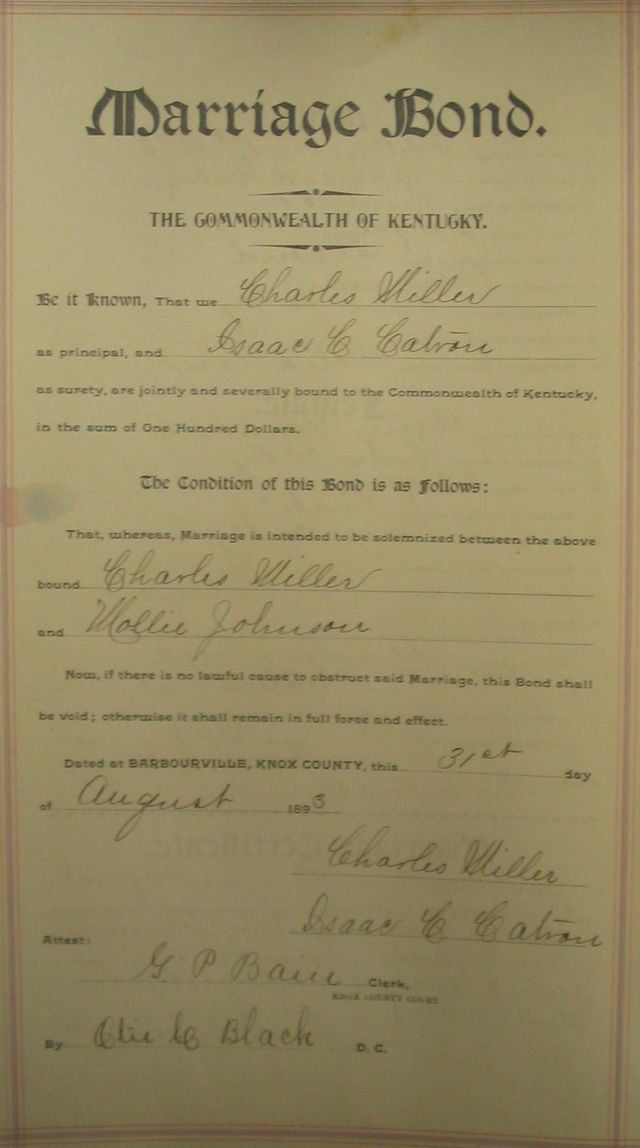 Marriage Bond.
THE COMMONWEALTH OF KENTUCKY.
Be it known, That we Charles Miller
as principal, and Isaac C Catron
as surety, are jointly and severally bound to the Commonwealth of Kentucky,
in the sum of One Hundred Dollars.
The Condition of this Bond is as Follows:
That, whereas, Marriage is intended to be solemnized between the above
bound Charles Miller
and Mollie Johnson
Now, if there is no lawful cause to obstruct said Marriage, this Bond shall
be void; otherwise it shall remain in full force and effect.
Dated at BARBOURVILLE, KNOX COUNTY, this 31st day
of August 1893
Charles Miller
Isaac C Catron
Attest:
G P Bain Clerk,
KNOX COUNTY COURT.
By C Black D. C.